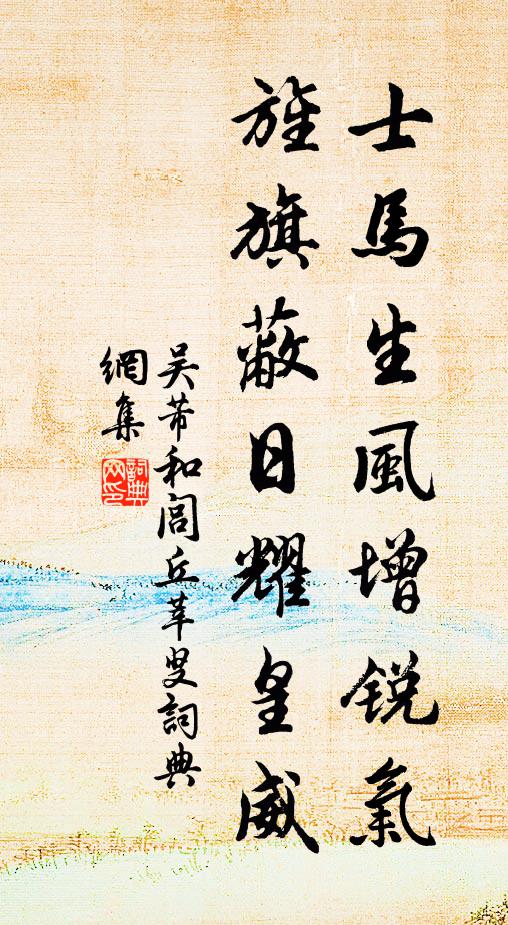 士馬生風增銳氣
旌旗蔽日耀皇威
吴芾和闾丘莘叟詞典
網集
詞典網印